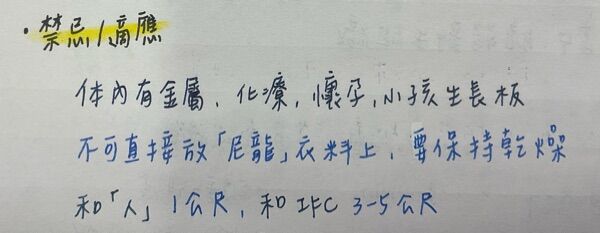 • 禁忌/適應
体內有金屬、化療,懷孕,小孩生長板
不可直接放「尼龍」衣料上,要保持乾燥
和「人」1公尺,和 IFC 3-5公尺